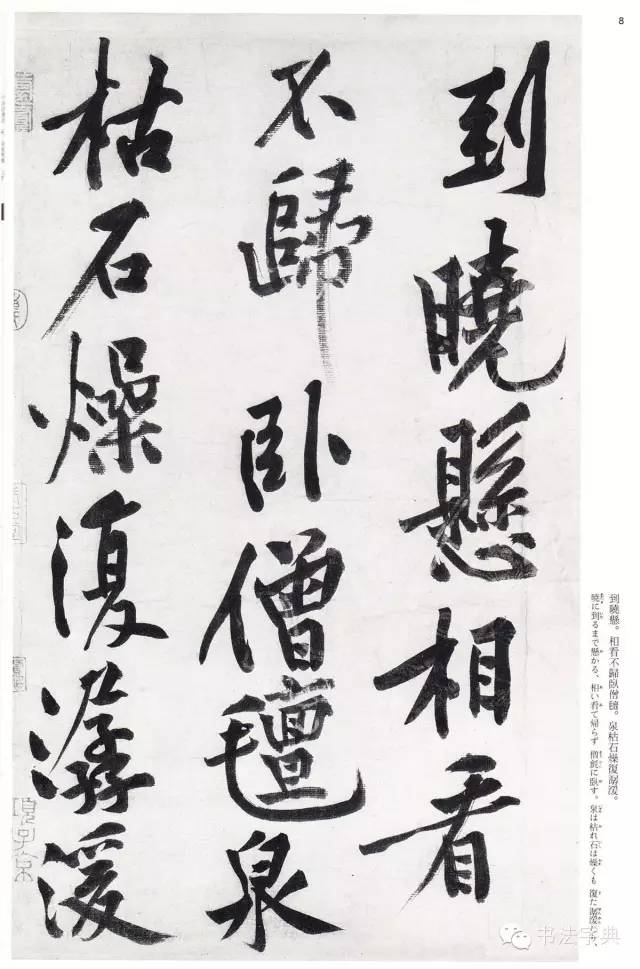 8
到曉懸相看
不歸卧僧氊泉
枯石燥復潺湲
到曉懸。相看不歸臥僧氊。泉枯石燥復潺湲。
曉に到るまで懸かる、相い看て帰らず 僧氊に臥す。泉は枯れ石は燥くも 復た潺湲たり、
项子京
书法字典